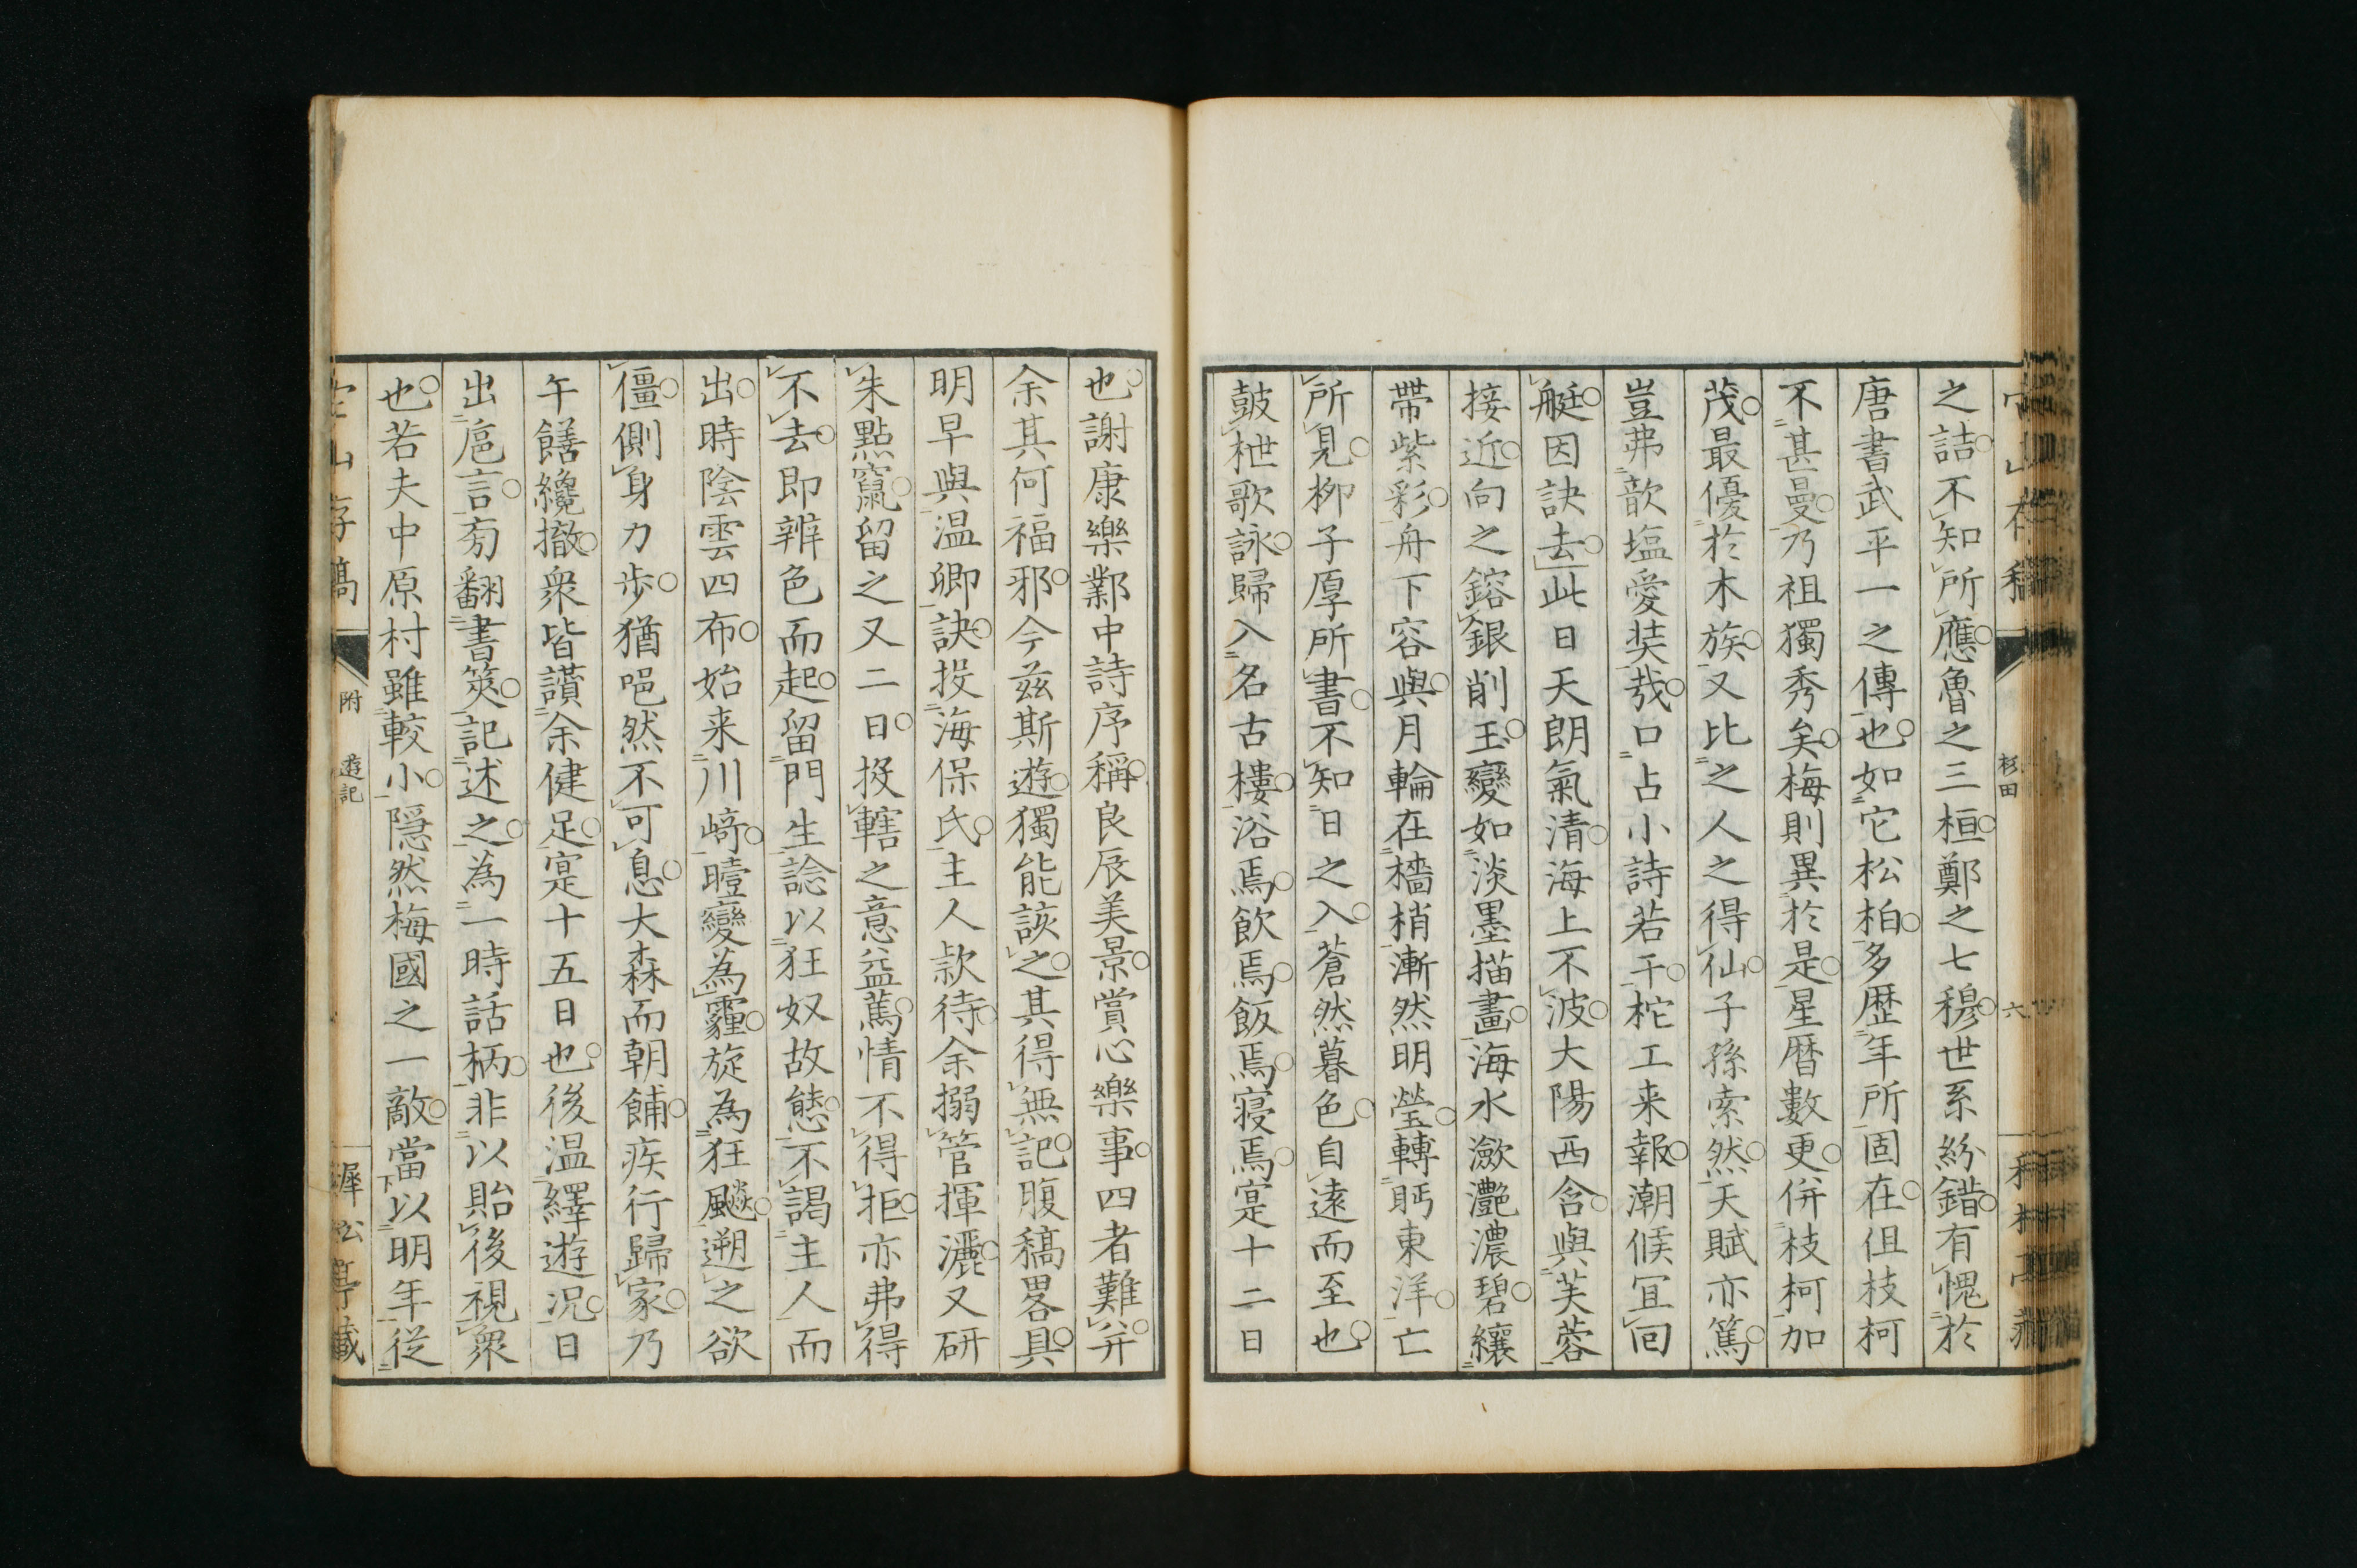 之詰不知所應魯之三桓鄭之七穆世系紛錯有愧於
唐書武平一之傳也如它松柏多歴年所固在但枝柯
不甚曼乃祖獨秀矣梅則異於是星暦數更併枝柯加
茂最優於木族又比之人之得仙子孫索然天賦亦篤
豈弗歆塩愛奘哉口占小詩若干柁工来報潮候冝回
艇因訣去此日天朗氣清海上不波大陽西含與芙蓉
接近向之鎔銀削玉變如淡墨描畫海水瀲灔濃碧纕
帶紫彩舟下容與月輪在檣梢漸然明瑩轉眄東洋亡
所見栁子厚所書不知日之入蒼然暮色自遠而至也
鼓枻歌詠歸入名古樓浴焉飲焉飯焉寝焉寔十二日
杉田
六
也謝康樂鄴中詩序稱良辰美景賞心樂事四者難并
余其何福邪今兹斯遊獨能該之其得無記腹稿畧具
明早與温卿訣投海保氏主人款待余搦管揮灑又研
朱點竄留之又二日投轄之意益篤情不得拒亦弗得
不去即辨色而起留門生諗以狂奴故態不謁主人而
出時陰雲四布始来川﨑曀變為霾旋為狂飈遡之欲
僵側身力歩猶唈然不可息大森而朝餔疾行歸家乃
午饍纔撤衆皆讃余健足寔十五日也後温繹遊况日
出巵言㫄翻書筴記述之為一時話柄非以貽後視衆
也若夫中原村雖較小隠然梅國之一敵當以明年従
附
遊記